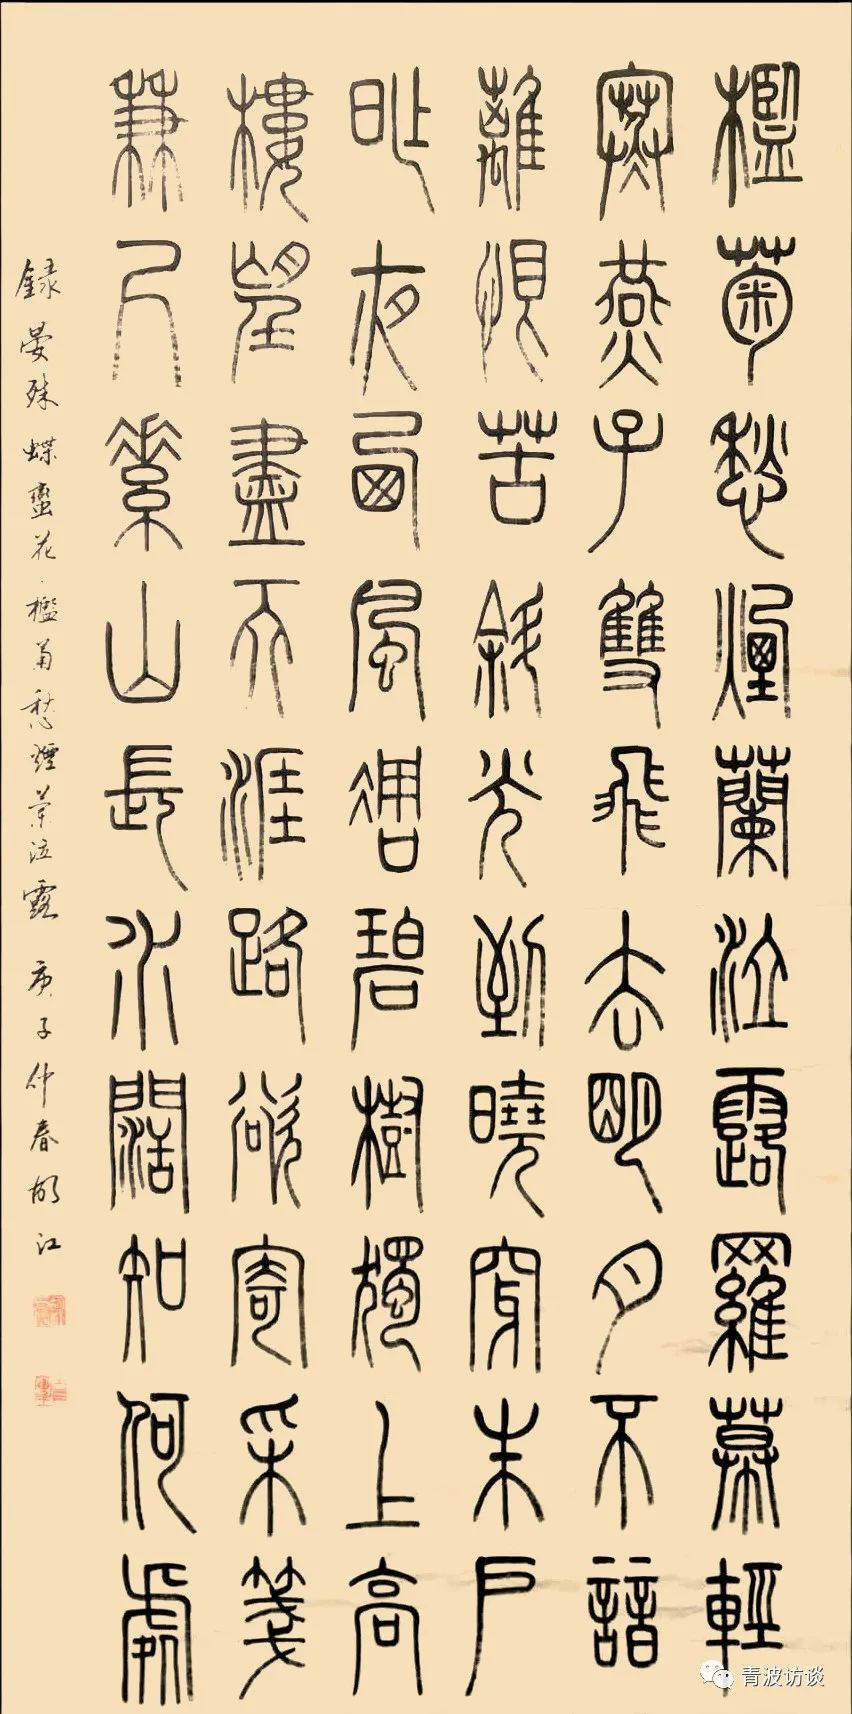 檻菊愁煙蘭泣露羅幕輕
寒燕子雙飛去明月不諳
離恨苦斜光到曉穿朱戶
昨夜西風凋碧樹獨上高
樓望盡天涯路欲寄采箋
兼尺素山長水闊知何處
録晏殊蝶戀花·檻菊愁煙蘭泣露 庚子仲春胡江
青波访谈